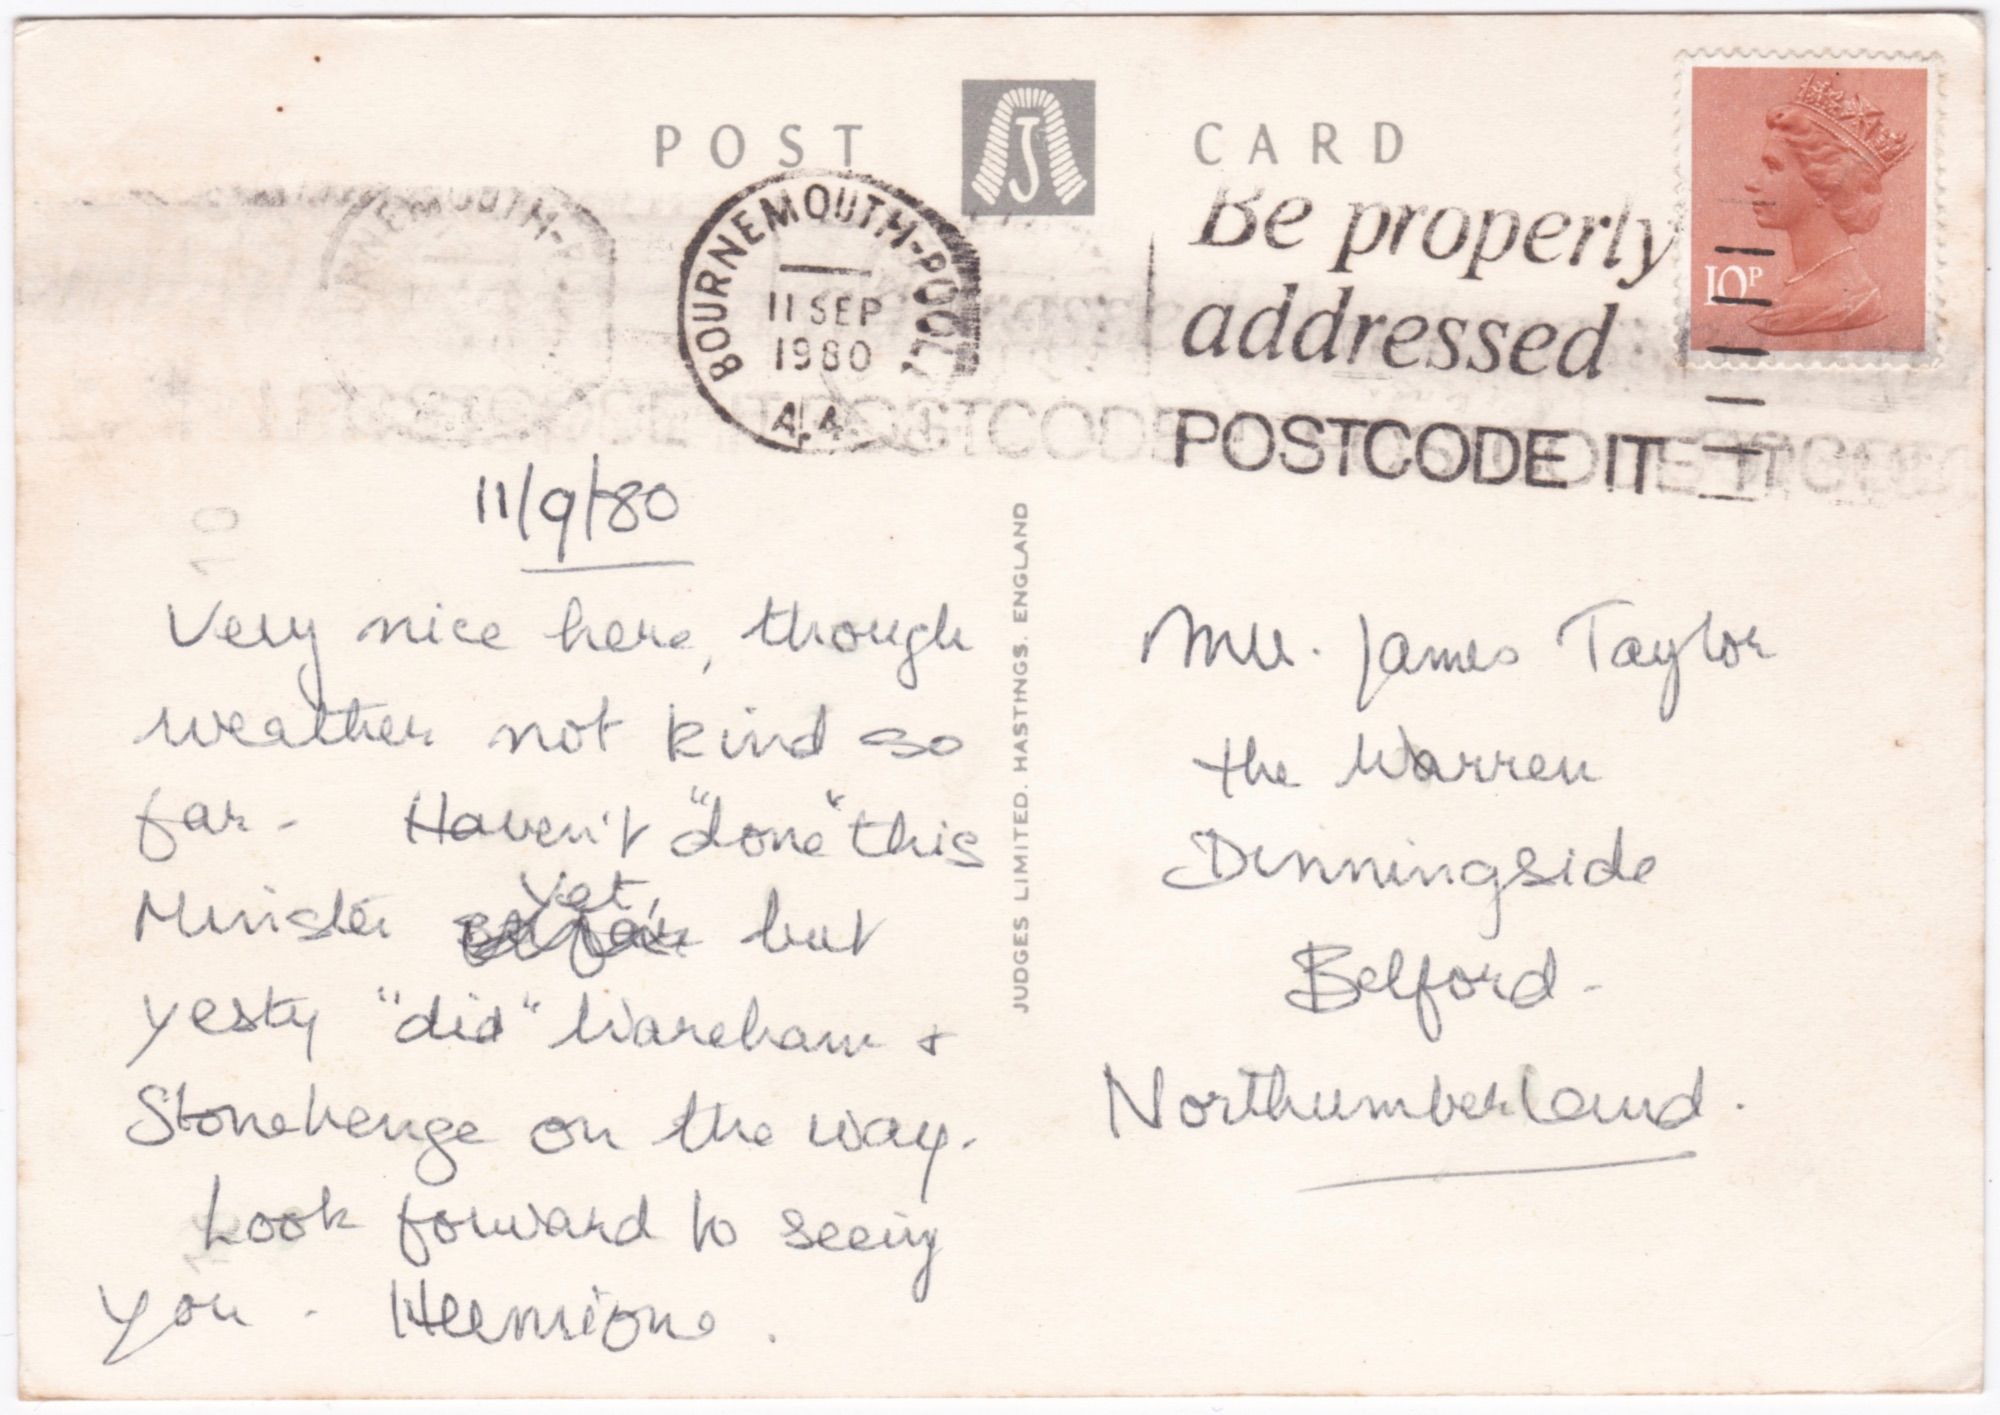 POST CARD
J
BOURNEMOUTH-POOLE
11 SEP
1980
A.A.
Be properly
addressed
POSTCODE IT
10P
11/9/80
Very nice here, though
weather not kind so
far. Haven't "done" this
Minster yet, but
yesty "did" Wareham +
Stonehenge on the way.
Look forward to seeing
you. Hermione.
JUDGES LIMITED. HASTINGS. ENGLAND
Mr. James Taylor
the Warren
Dinningside
Belford.
Northumberland.